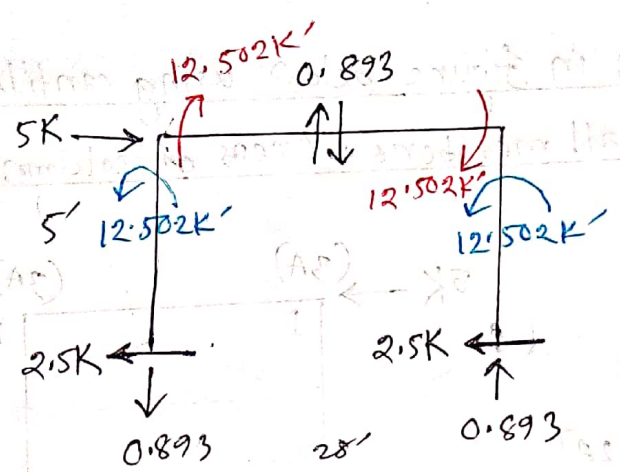 12.502K'
0.893
5K
12.502K'
5'
12.502K'
12.502K'
2.5K
2.5K
0.893
28'
0.893